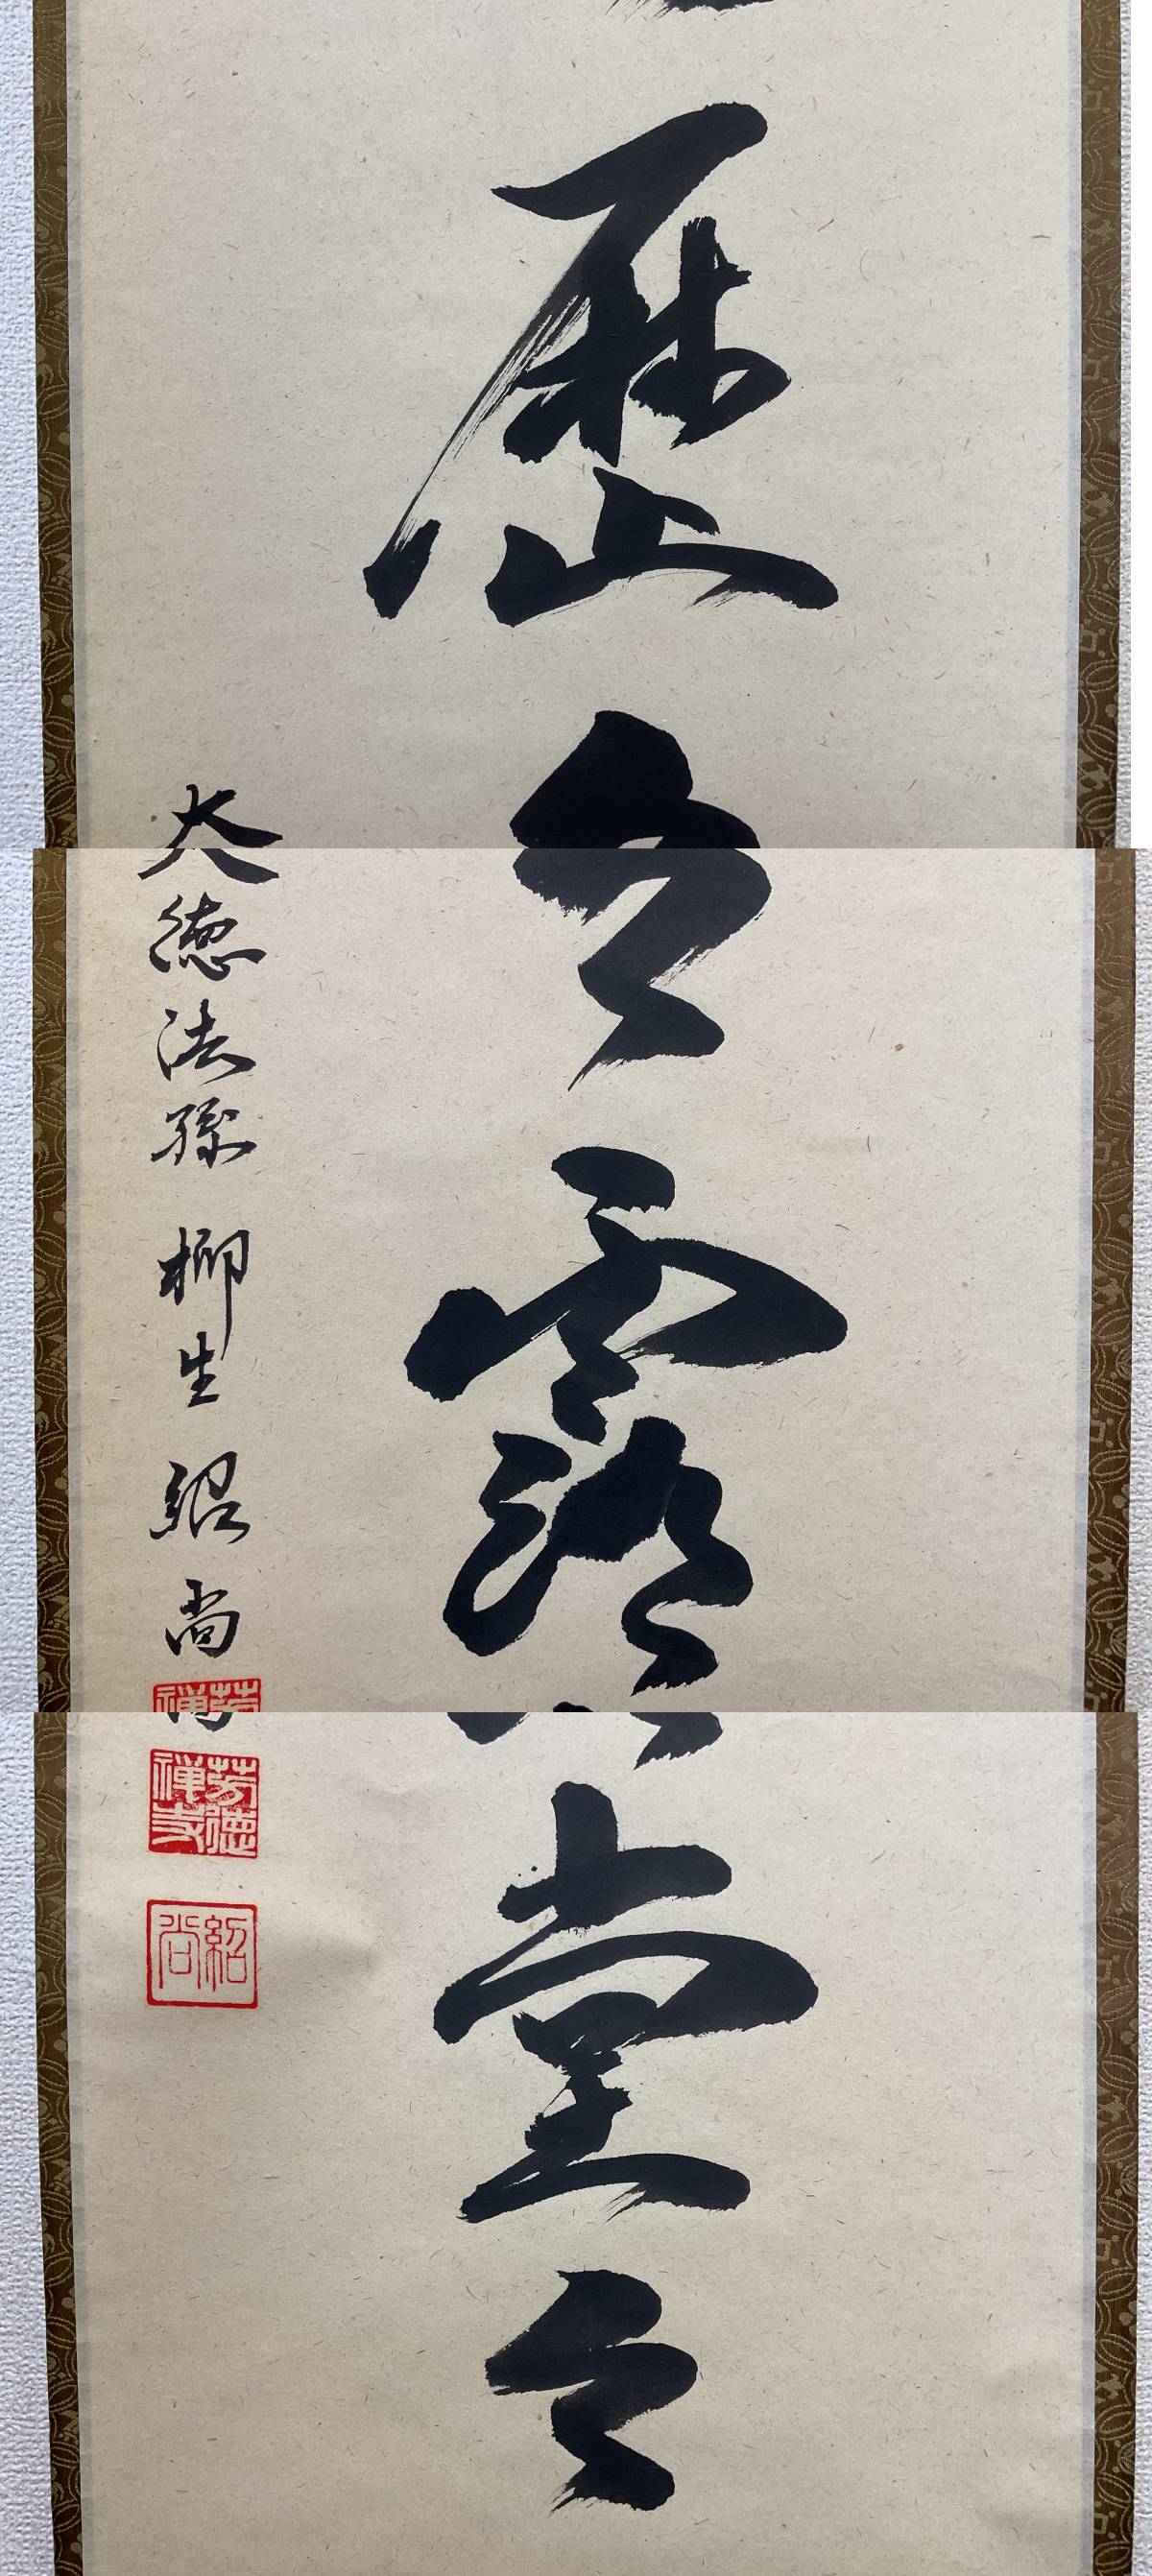 歴々露堂々
大徳法孫 柳生 紹尚
芳徳禅寺
紹尚